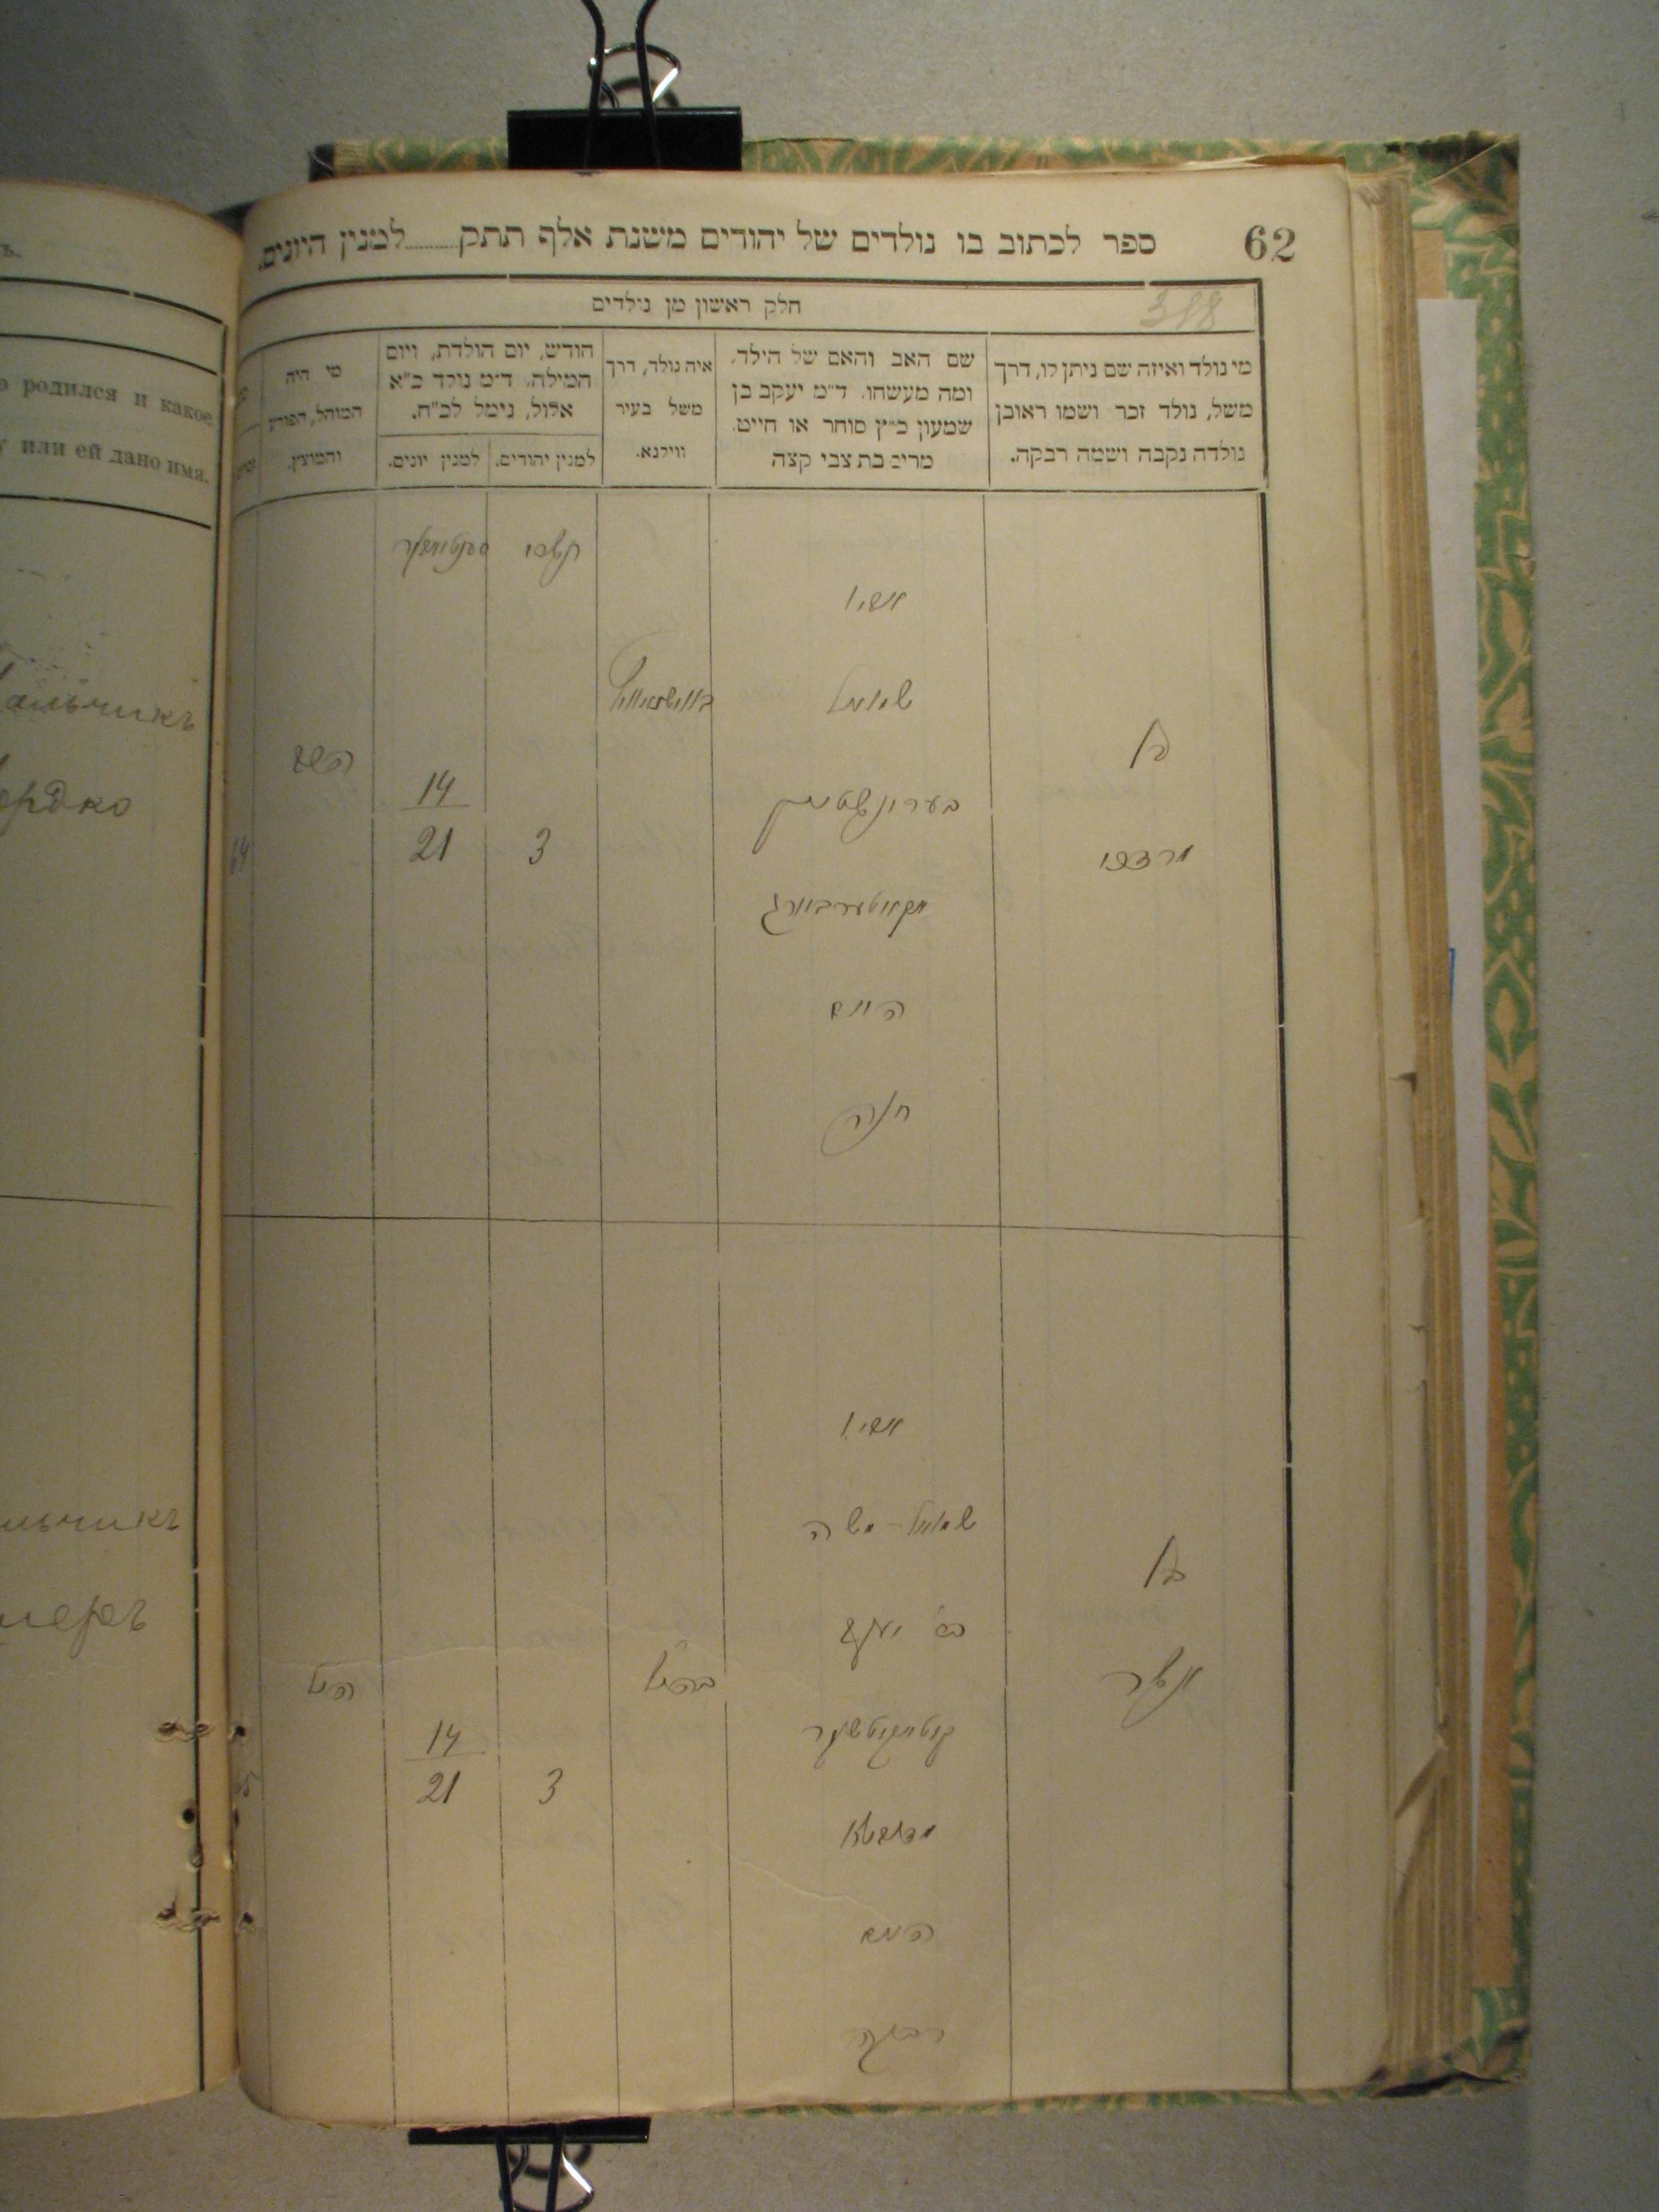 62
ספר לכתוב בו נולדים של יהודים משנת אלף תתק........למנין היונים.
318
חלק ראשון מן נולדים
מי נולד ואיזה שם ניתן לו, דרך
משל, נולד זכר ושמו ראובן
נולדה נקבה ושמה רבקה.
שם האב והאם של הילד,
ומה מעשהו. ד״מ יעקב בן
שמעון כ״ץ סוחר או חייט.
מרים בת צבי קצה
איה נולד, דרך
משל בעיר
ווילנא.
חודש, יום הולדת, ויום
המילה. ד״מ נולד כ״א
אלול, נימל לכ״ח.
למנין יהודים.
למנין יונים.
מי היה
המוהל, הפורע
והמוצץ.
תשרי
סענטיאבר
בן
מרדכי
אביו
שמואל
בערונשטיין
האם
חנה
3
14
21
64
בן
אשר
אביו
שמואל-משה
בר׳ יעקב
האם
רבקה
3
14
21
65
о родился и какое
у или ей дано имя.
альчикъ
ордко
льчикъ
шеръ